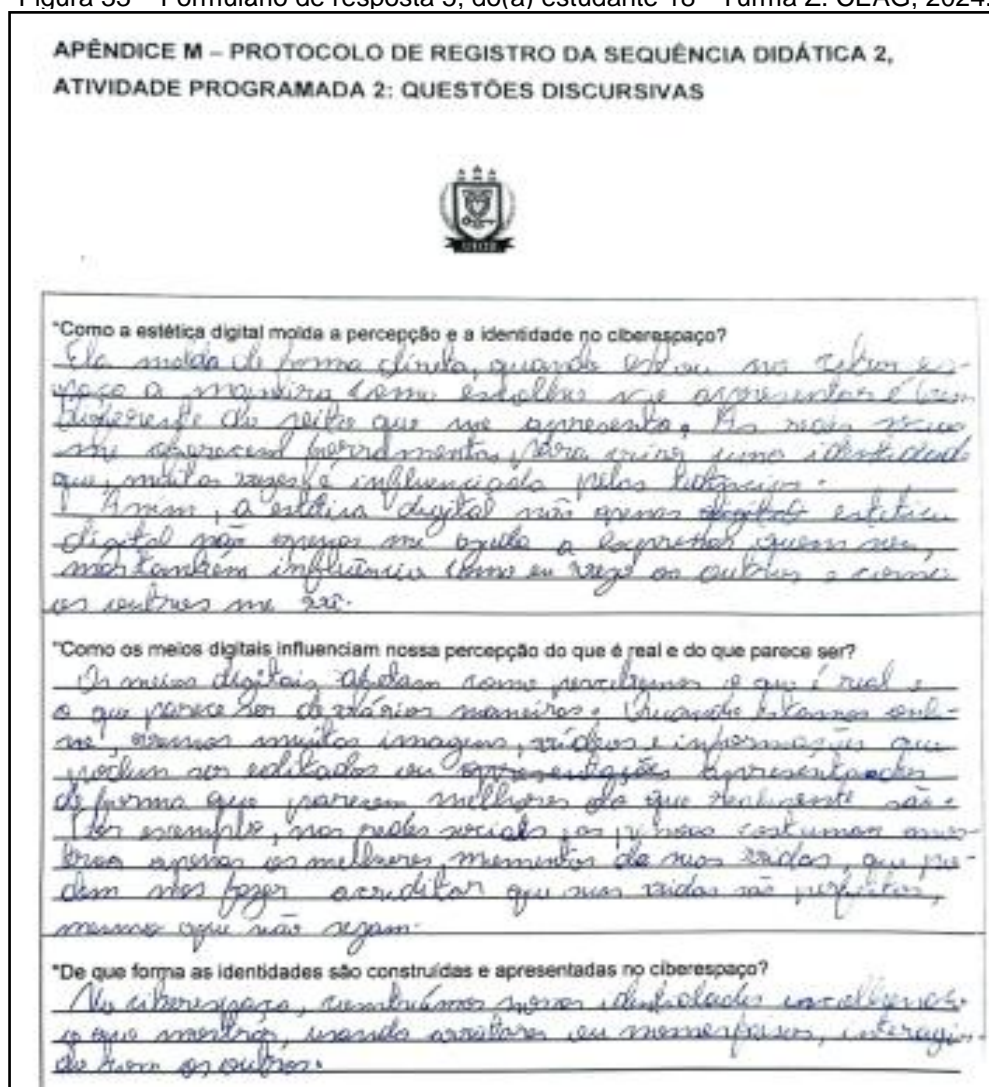 Figura 33 – Formulário de resposta 3, do(a) estudante 18 - Turma Z. CEAG, 2024.
APÊNDICE M – PROTOCOLO DE REGISTRO DA SEQUÊNCIA DIDÁTICA 2,
ATIVIDADE PROGRAMADA 2: QUESTÕES DISCURSIVAS
"Como a estética digital molda a percepção e a identidade no ciberespaço?
Ela molda de forma direta, quando estou no ciberes-
paço a maneira como escolho me apresentar é bem
diferente do jeito que me apresento. As redes sociais
me oferecem ferramentas para criar uma identidade
que, muitas vezes é influenciada pelas
Assim, a estética digital não apenas digital estética
digital não apenas me ajuda a expressar quem sou,
mas também influência como eu vejo os outros e como
os outros me
"Como os meios digitais influenciam nossa percepção do que é real e do que parece ser?
Os meios digitais afetam como percebemos o que é real e
o que parece ser de várias maneiras. Quando estamos onli-
ne, vemos muitas imagens, vídeos e informações que
podem ser editados ou apresentações apresentados
de forma que parecem melhores do que realmente são.
Por exemplo, nas redes sociais, as pessoas costumam mos-
trar apenas os melhores momentos de suas vidas, que po-
dem nos fazer acreditar que suas vidas são perfeitas,
mesmo que não sejam.
"De que forma as identidades são construídas e apresentadas no ciberespaço?
No ciberespaço, construímos novas identidades
o que mostrar, usando avatares ou interagin-
do com os outros.